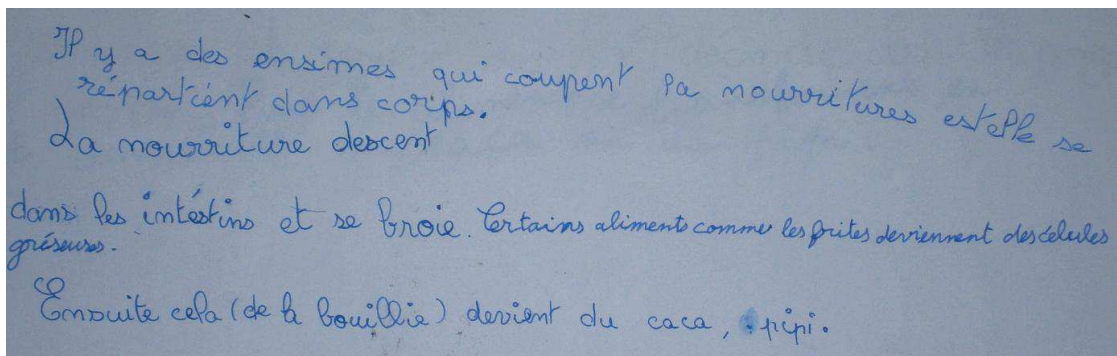 Il y a des ensimes qui coupent la nourritures estelle se
répartient dans corps.
La nourriture descent
dans les intéstins et se broie. Certains aliments comme les frites deviennent des célules
gréseuses.
Ensuite cela (de la bouillie) devient du caca, pipi.